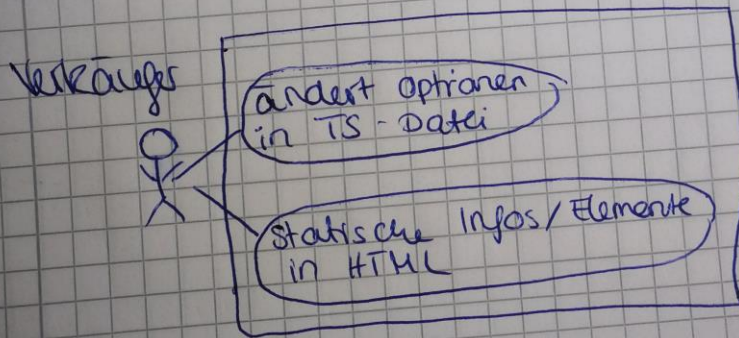 Verkäufer
ändert Optionen
in TS-Datei
statische Infos/Elemente
in HTML